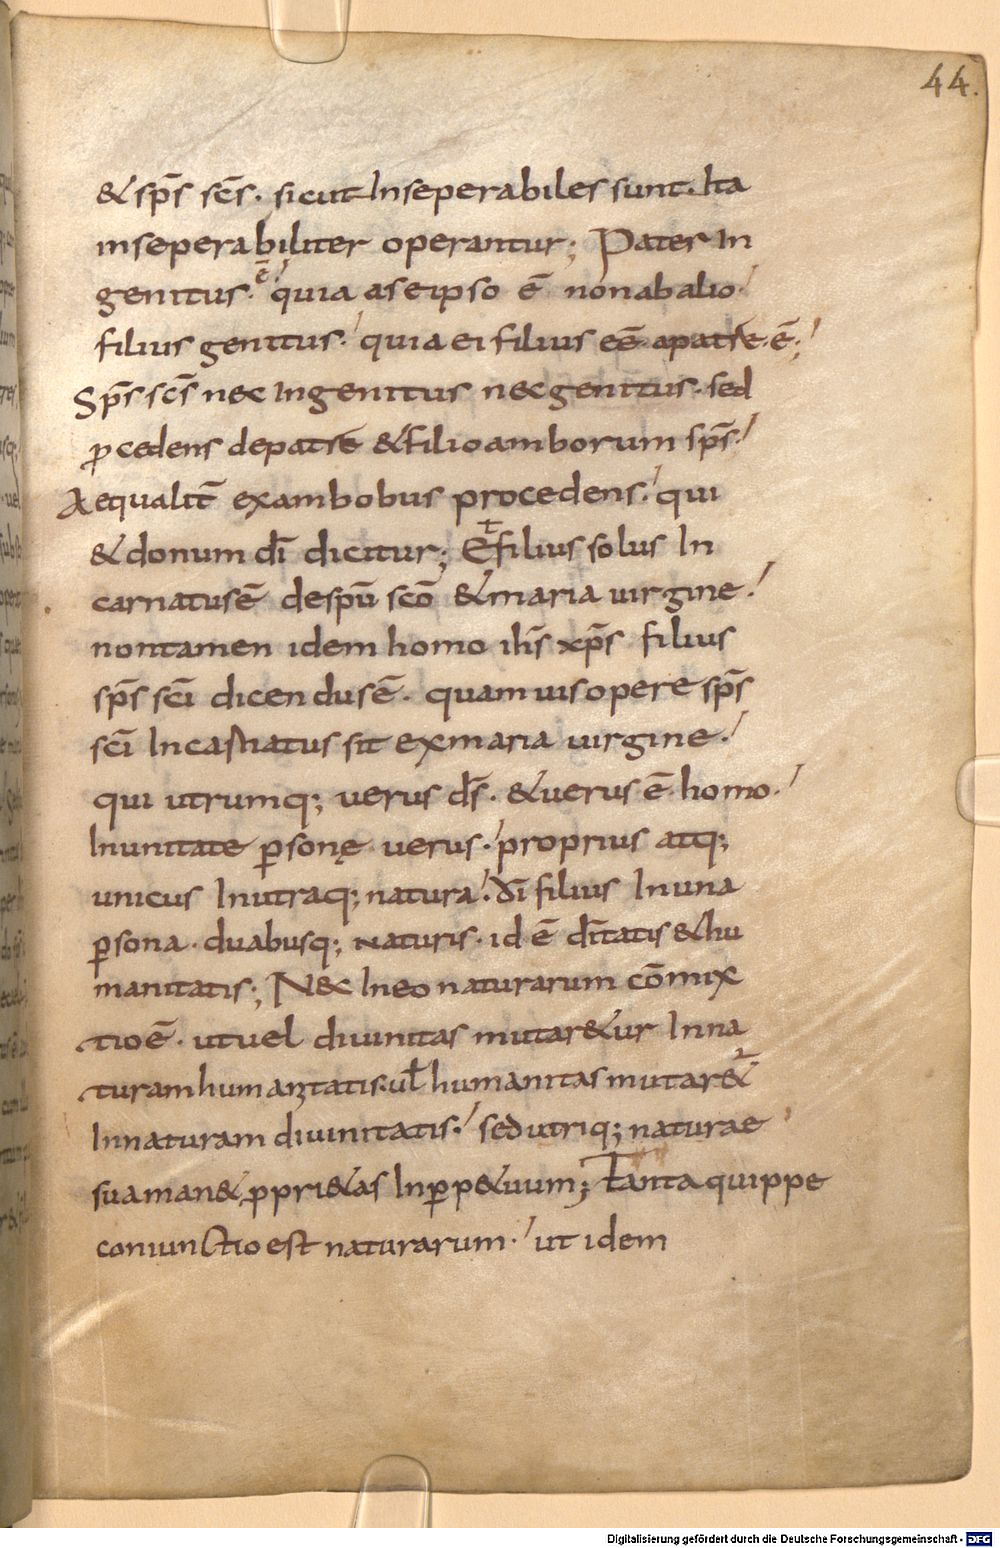 44.
& sp̄s sc̄s. sicut Inseperabiles sunt. Ita
inseperabiliter operantur; Pater In
genitus. ē quia aseipso ē nonabalio.
filius genitus. quia ei filius eē apatre. ē;
Sp̄s sc̄s nec Ingenitus nec genitus. sed
ꝓcedens depatre & filio amborum sp̄s.
Aequalit̄ exambobus procedens. qui
& donum dī dicitur; Et filius solus In
carnatus ē despū scō & maria uirgine.
nontamen idem homo ih̄s xp̄s filius
sp̄s scī dicendus ē. quamuis opere sp̄s
scī Incastratus sit exmaria uirgine.
qui utrumq; uerus d̄s. & uerus ē homo.
Inunitate ꝑsonę uerus. proprius atq;
unicus Inutraq; natura. dī filius Inuna
ꝑsona. duabusq; naturis. id ē dītatis & hu
manitatis; N& Ineo naturarum cōmix
tio ē. ut uel diuinitas mutar&ur Inna
turam humanitatis. ul̄ humanitas mutar&ur
Innaturam diuinitatis. sed utriq; naturae
sua man& ꝓpri&as Inꝑp&uum; Tanta quippe
coniunctio est naturarum. ut idem
Digitalisierung gefördert durch die Deutsche Forschungsgemeinschaft - DFG